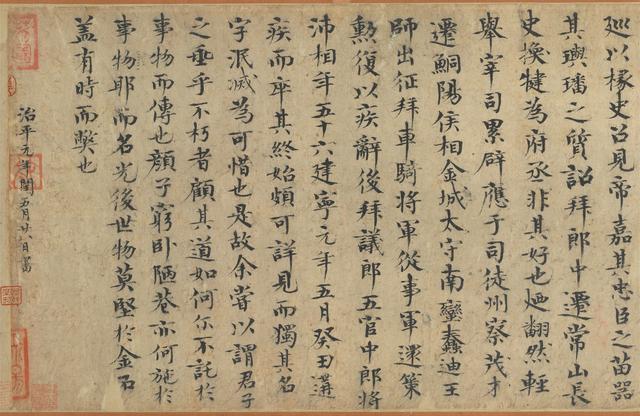 巡以掾史召見帝嘉其忠臣之苗器
其璵璠之質詔拜郎中遷常山長
史換犍為府丞非其好也迺翻然輕
舉宰司累辟應于司徒州察茂才
遷鮦陽侯相金城太守南蠻蠢迪王
師出征拜車騎將軍從事軍還策
勲復以疾辭後拜議郎五官中郎將
沛相年五十六建寧元年五月癸丑遘
疾而卒其終始頗可詳見而獨其名
字泯滅為可惜也是故余嘗以謂君子
之垂乎不朽者顧其道如何尒不託於
事物而傳也顏子窮卧陋巷亦何施於
事物耶而名光後世物莫堅於金石
蓋有時而弊也
治平元年閏五月廿八日書